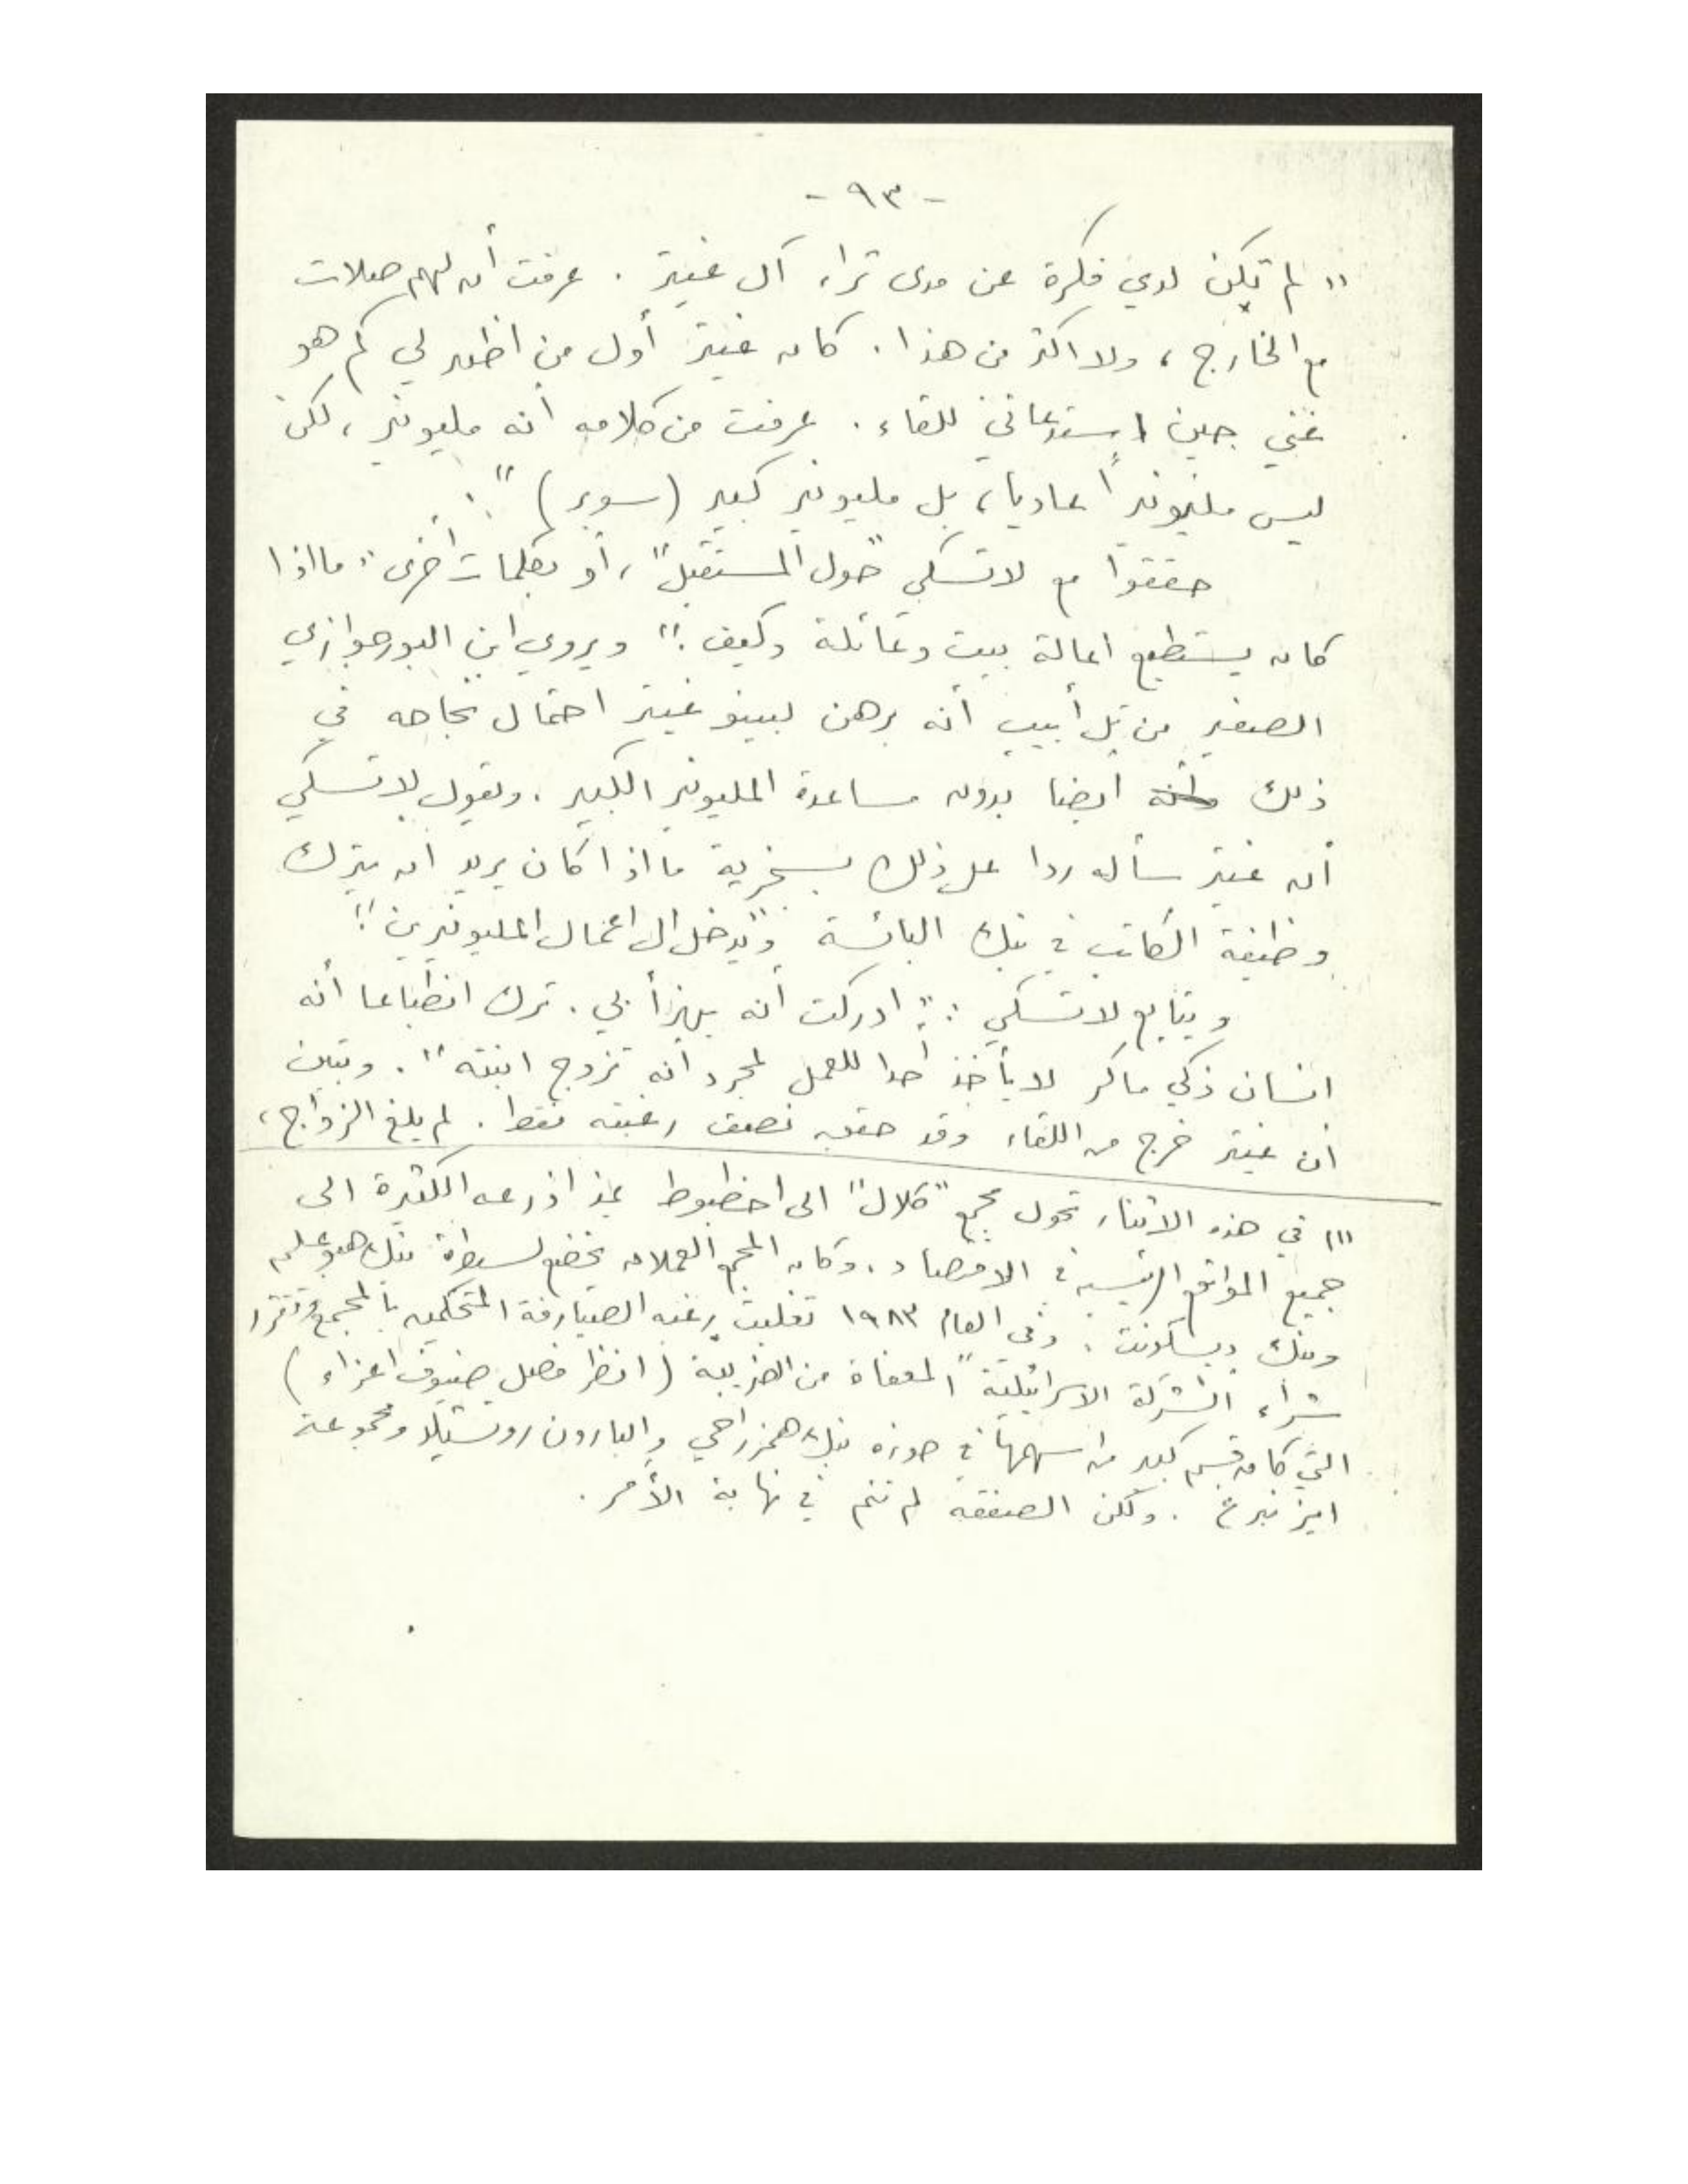 - ٩٣ -
" لم تكن لدي فكرة عن مدى ثراء آل غيتر . عرفت أن لهم صلات
مع الخارج ، ولا اكثر من هذا . كان غيتر أول من اظهر لي كم هو
غني حين استدعاني للقاء . عرفت من كلامه أنه مليونير ، لكن
ليس مليونيراً عاديا ، بل مليونير كبير (سوبر) " .
حققوا مع لاتسكي "حول المستقبل" ، أو بكلمات أخرى " ما اذا
كان يستطيع اعالة بيت وعائلة وكيف " ويروي ابن البورجوازي
الصغير من تل أبيب أنه برهن لبينو غيتر احتمال نجاحه في
ذلك أيضا بدون مساعدة المليونير الكبير . ويقول لاتسكي
أن غيتر سأله ردا على ذلك بسخرية ما اذا كان يريد ان يترك
وظيفة الكاتب في بنك البائسة و"يدخل الى اعمال المليونيرين"
ويتابع لاتسكي : " ادركت أنه يهزأ بي . ترك انطباعا أنه
انسان ذكي ماكر لا يأخذ أحدا للعمل لمجرد أنه تزوج ابنته " . وتبين
ان غيتر خرج من اللقاء وقد حقق نصف رغبته فقط . لم يلغ الزواج ،
(١١ في هذه الاثناء تحول مجمع "كلال" الى اخطبوط يمد اذرعه الكثيرة الى
جميع المواقع الرئيسية في الاقتصاد . وكان المجمع العملاق يخضع لسيطرة بنك هبوعليم
وبنك ديسكونت . وفي العام ١٩٨٣ تغلبت رغبة الصيارفة المتحكمين بالمجمع وتقرر
شراء "الشركة الاسرائيلية" المعفاة من الضريبة (انظر فصل ضيوف اعزاء)
التي كان قسم كبير من اسهمها في حوزة بنك همزراحي والبارون روتشيلد ومجموعة
ايزنبرغ . ولكن الصفقة لم تتم في نهاية الأمر .